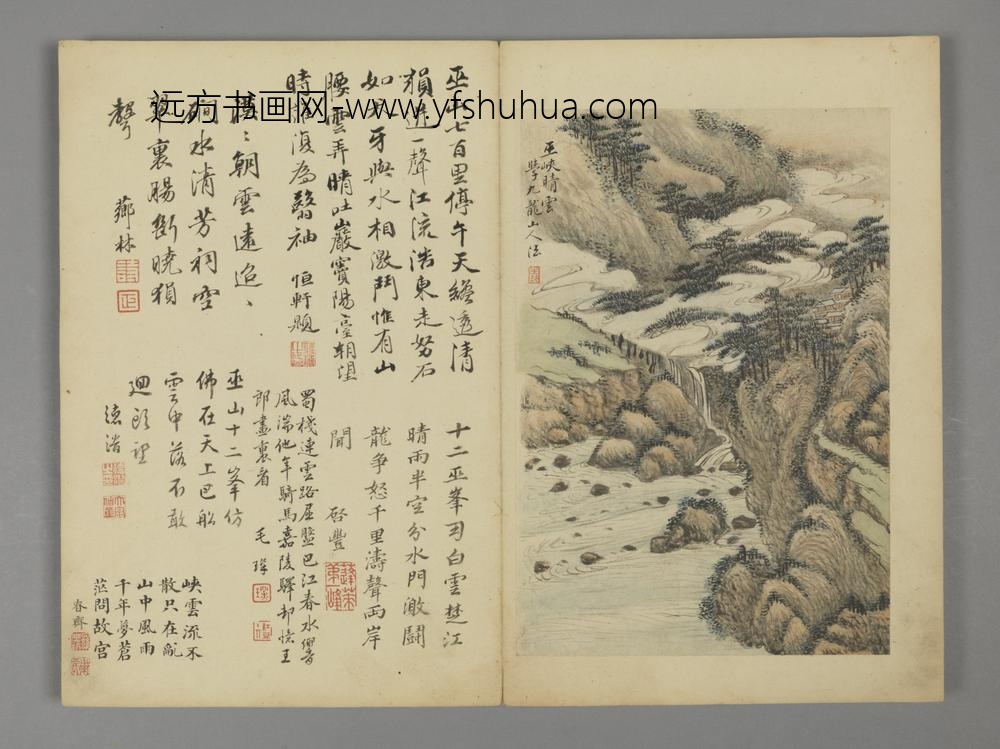 巫峽晴雲
學九龍山人法
巫七百里停午天纔透清
猿一聲江流浩東走努石
如牙與水相激鬥惟有山
腰雲弄晴吐巖竇陽臺朝望
時復為翳袖 恒軒題
朝雲遠
水清芳祠空
翠裏腸斷曉猿
聲 薌林
十二巫峯司白雲楚江
晴雨半空分水門激鬪
龍争怒千里濤聲両岸
聞 啓豐
蜀棧連雲路屈盤巴江春水響
風湍他年騎馬嘉陵驛却憶王
郎畫裏看 毛琛
巫山十二峯仿
佛在天上巴船
雲中落不敢
迴頭望
德潛
峽雲流不
散只在亂
山中風雨
千年夢蒼
茫問故宫
春齋
远方书画网-www.yfshuhua.com